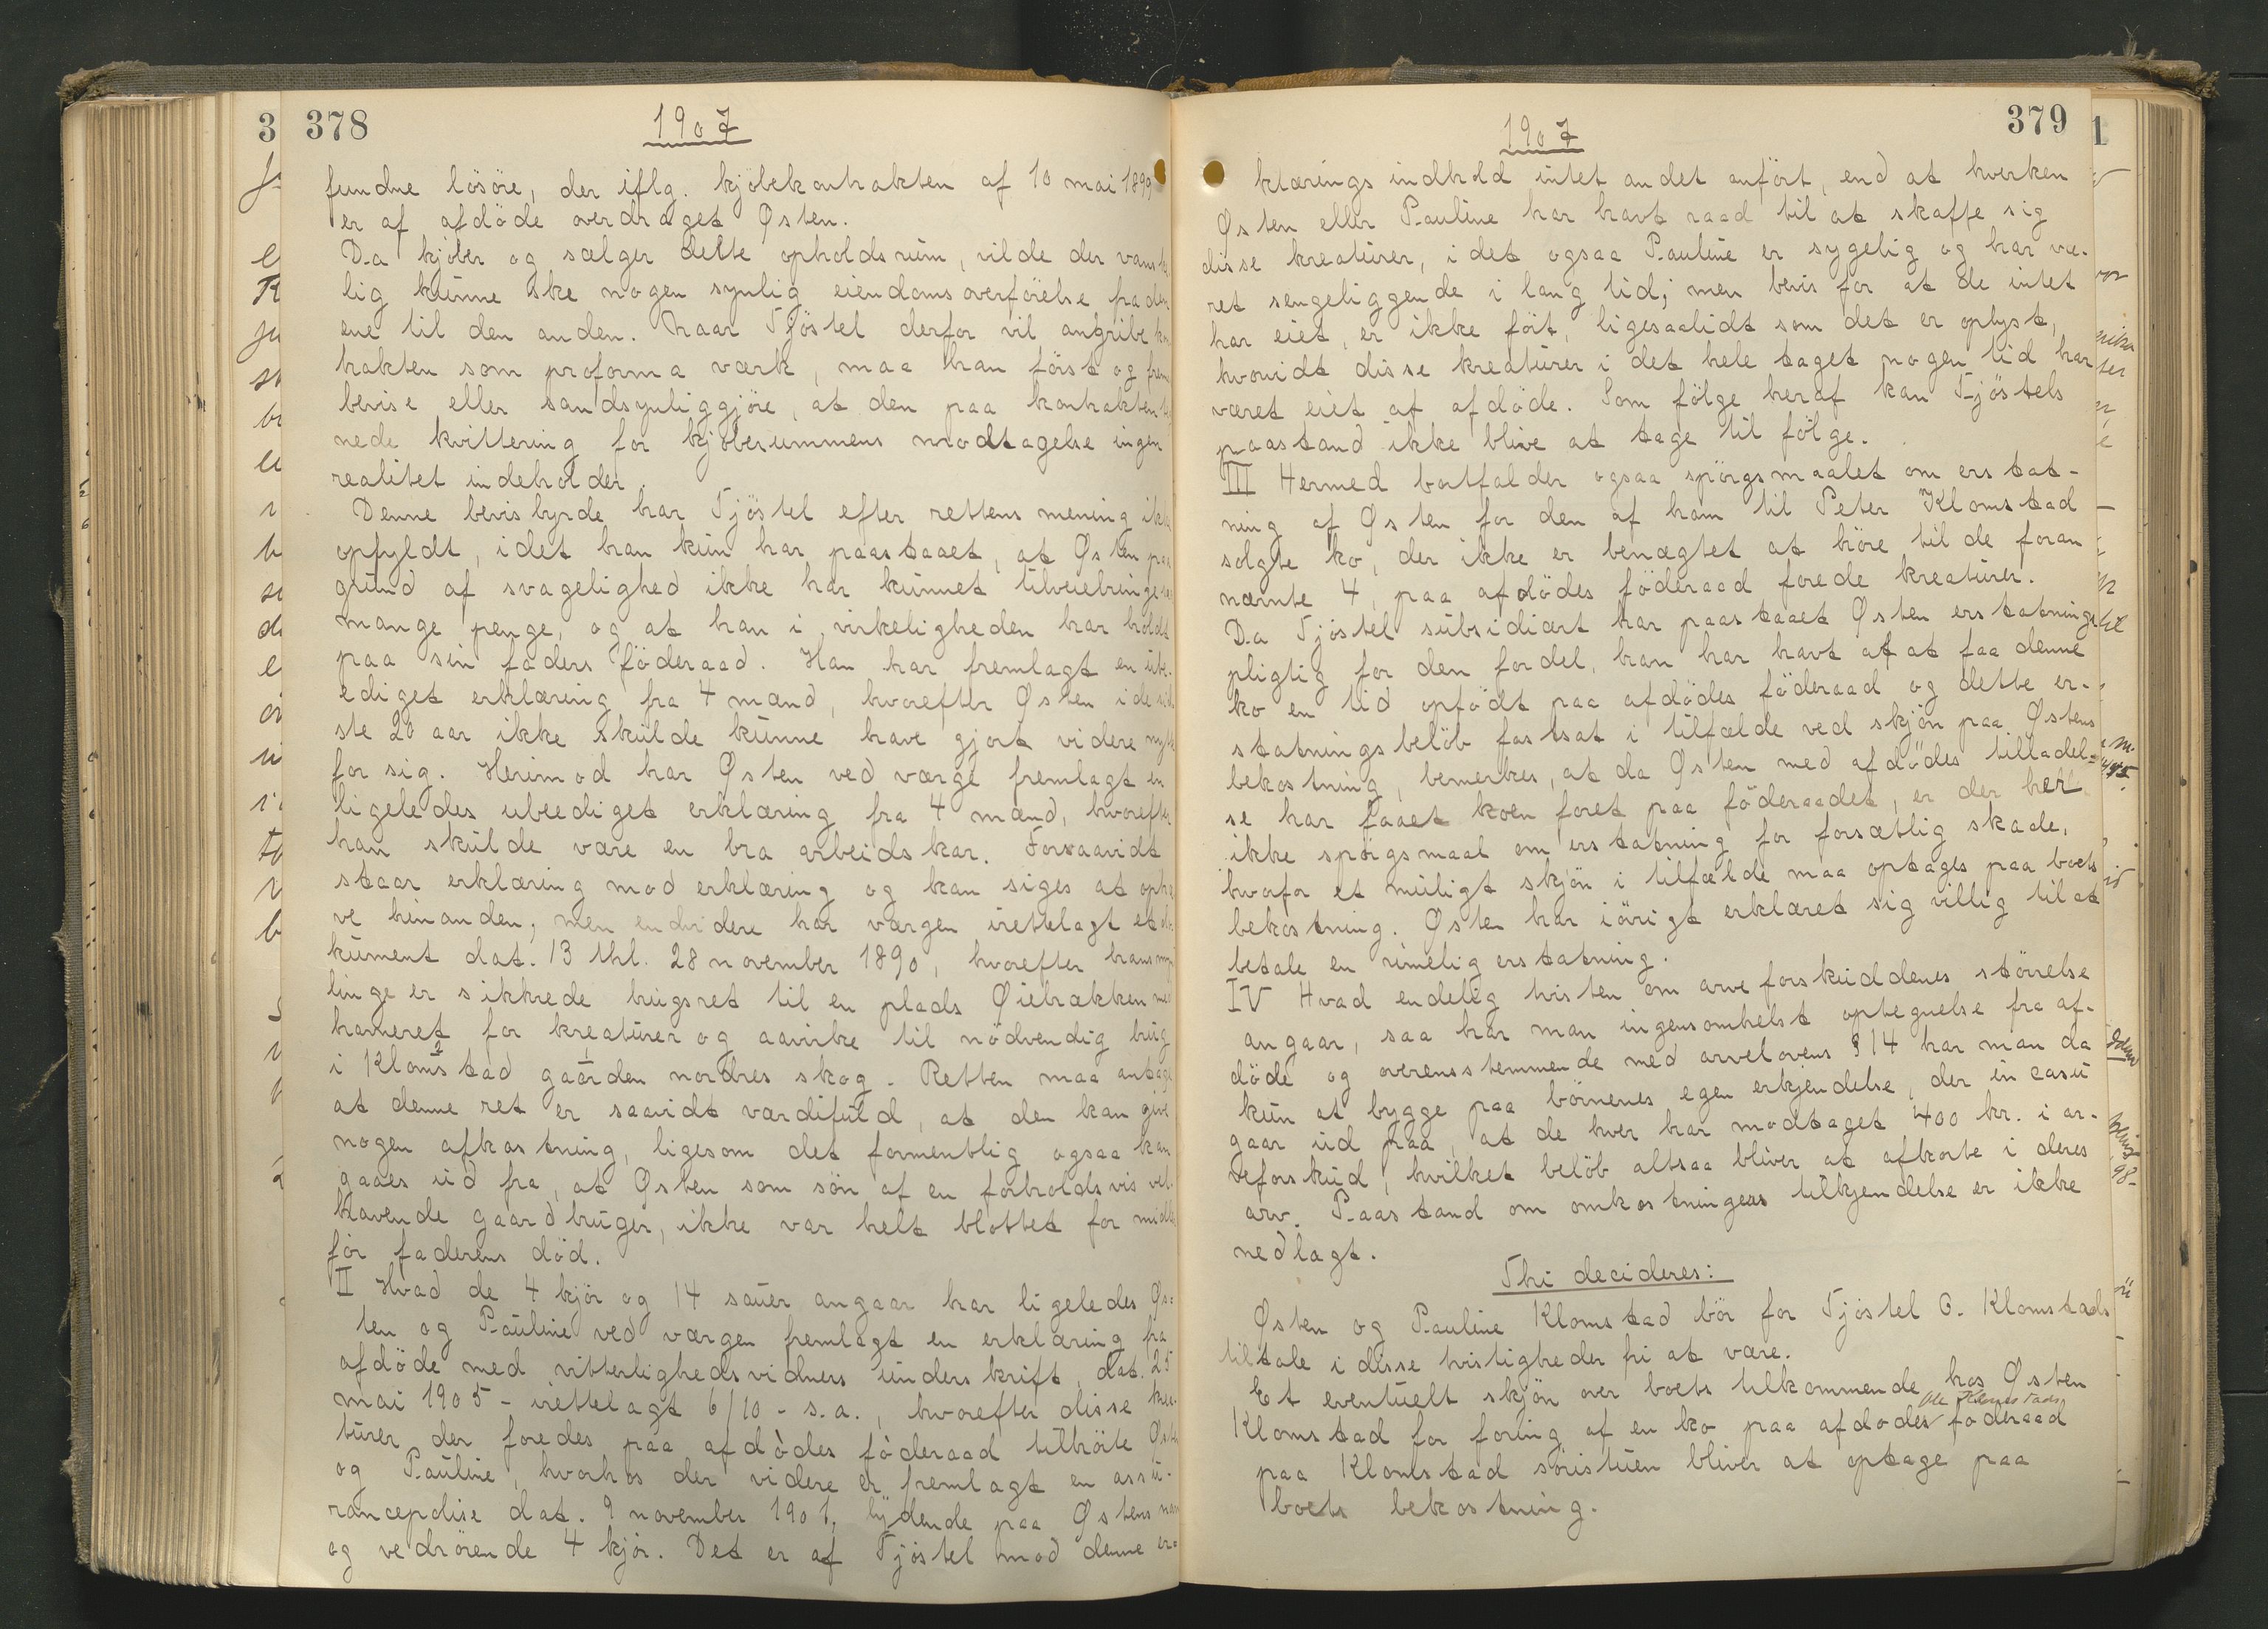 378
1907
fundne lösöre, der iflg. kjöbekontrakten af 10 mai 1899
er af afdöde overdraget Østen.
Da kjöber og sælger delte opholdsrum, vilde der vanske
lig kunne ske nogen synlig eiendomsoverförelse fra den
ene til den anden. Naar Tjöstel derfor vil angribe kon
trakten som proforma værk, maa han först og frem
bevise eller sandsynliggjöre, at den paa kontrakten
nede kvittering for kjöbesummens modtagelse ingen
realitet indeholder.
Denne bevisbyrde har Tjöstel efter rettens mening ikke
opfyldt, idet han kun har paastaaet, at Østen paa
grund af svagelighed ikke har kunnet tilveiebringe saa
mange penge, og at han i virkeligheden har holdt
paa sin faders föderaad. Han har fremlagt en ube-
ediget erklæring fra 4 mænd, hvorefter Østen i de sid
ste 20 aar ikke skulde kunne have gjort videre nytte
for sig. Herimod har Østen ved værge fremlagt en
ligeledes ubeediget erklæring fra 4 mænd, hvorefter
han skulde være en bra arbeidskar. Forsaavidt
staar erklæring mod erklæring og kan siges at ophæ
ve hinanden, men endvidere har værgen irettelagt et do
kument dat. 13 thl. 28 november 1890, hvorefter hans
linge er sikkrede brugsret til en plads Øiebrækken med
havneret for kreaturer og aavirke til nödvendig brug
i Klomstad gaarden nordres skog. Retten maa antage
at denne ret er saavidt værdifuld, at den kan give
nogen afkastning, ligesom det formentlig ogsaa kan
gaaes ud fra, at Østen som sön af en forholdsvis vel-
havende gaardbruger, ikke var helt blottet for midler
för faderens död.
II Hvad de 4 kjör og 14 sauer angaar har ligeledes Øs-
ten og Pauline ved værgen fremlagt en erklæring fra
afdöde med vitterlighedsvidners underskrift, dat. 25
mai 1905 - irettelagt 6/10 - s.a., hvorefter disse krea-
turer der foredes paa afdödes föderaad tilhörte Østen
og Pauline, hvorhos der videre er fremlagt en assu-
rancepolise dat. 9 november 1901, lydende paa Østens navn
og vedrörende 4 kjör. Det er af Tjöstel mod denne er-
379
1907
klærings indhold intet andet anfört, end at hverken
Østen eller Pauline har havt raad til at skaffe sig
disse kreaturer, idet ogsaa Pauline er sygelig og har væ-
ret sengeliggende i lang tid; men bevis for at de intet
har eiet, er ikke fört, ligesaalidt som det er oplyst,
hvorvidt disse kreaturer i det hele taget nogen tid har
været eiet af afdöde. Som fölge heraf kan Tjöstels
paastand ikke blive at tage til fölge.
III Hermed bortfalder ogsaa spörgsmaalet om erstat-
ning af Østen for den af ham til Peter Klomstad
solgte ko, der ikke er benægtet at höre til de foran
nævnte 4, paa afdödes föderaad forede kreaturer.
Da Tjöstel subsidiært har paastaaet Østen erstatnings
pligtig for den fordel, han har havt af at faa denne
ko en tid opfödt paa afdödes föderaad og dette er-
statningsbelöb fastsat i tilfælde ved skjön paa Østens
bekostning, bemerkes, at da Østen med afdödes tilladel-
se har faaet koen foret paa föderaadet, er der her
ikke spörgsmaal om erstatning for forsætlig skade,
hvorfor et muligt skjön i tilfælde maa optages paa boets
bekostning. Østen har iövrigt erklæret sig villig til at
betale en rimelig erstatning.
IV Hvad endelig tvisten om arveforskuddenes störrelse
angaar, saa har man ingensomhelst optegnelse fra af-
döde og overensstemmende med arvelovens § 14 har man da
kun at bygge paa börnenes egen erkjendelse, der in casu
gaar ud paa, at de hver har modtaget 400 kr. i ar-
veforskud, hvilket belöb altsaa bliver at afkorte i deres
arv. Paastand om omkostningers tilkjendelse er ikke
nedlagt.
Thi decideres:
Østen og Pauline Klomstad bör for Tjöstel O. Klomstads
tiltale i disse tvistigheder fri at være.
Et eventuelt skjön over boets tilkommende hos Østen
Ole Klomstads
Klomstad for foring af en ko paa afdödes föderaad
paa Klomstad söristuen bliver at optage paa
boets bekostning.